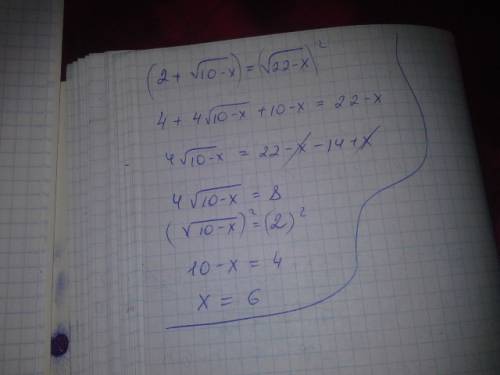 (2 + √10-x) = (√22-x)²
4 + 4√10-x + 10-x = 22-x
4√10-x = 22-x-14+x
4√10-x = 8
(√10-x)² = (2)²
10-x = 4
x = 6